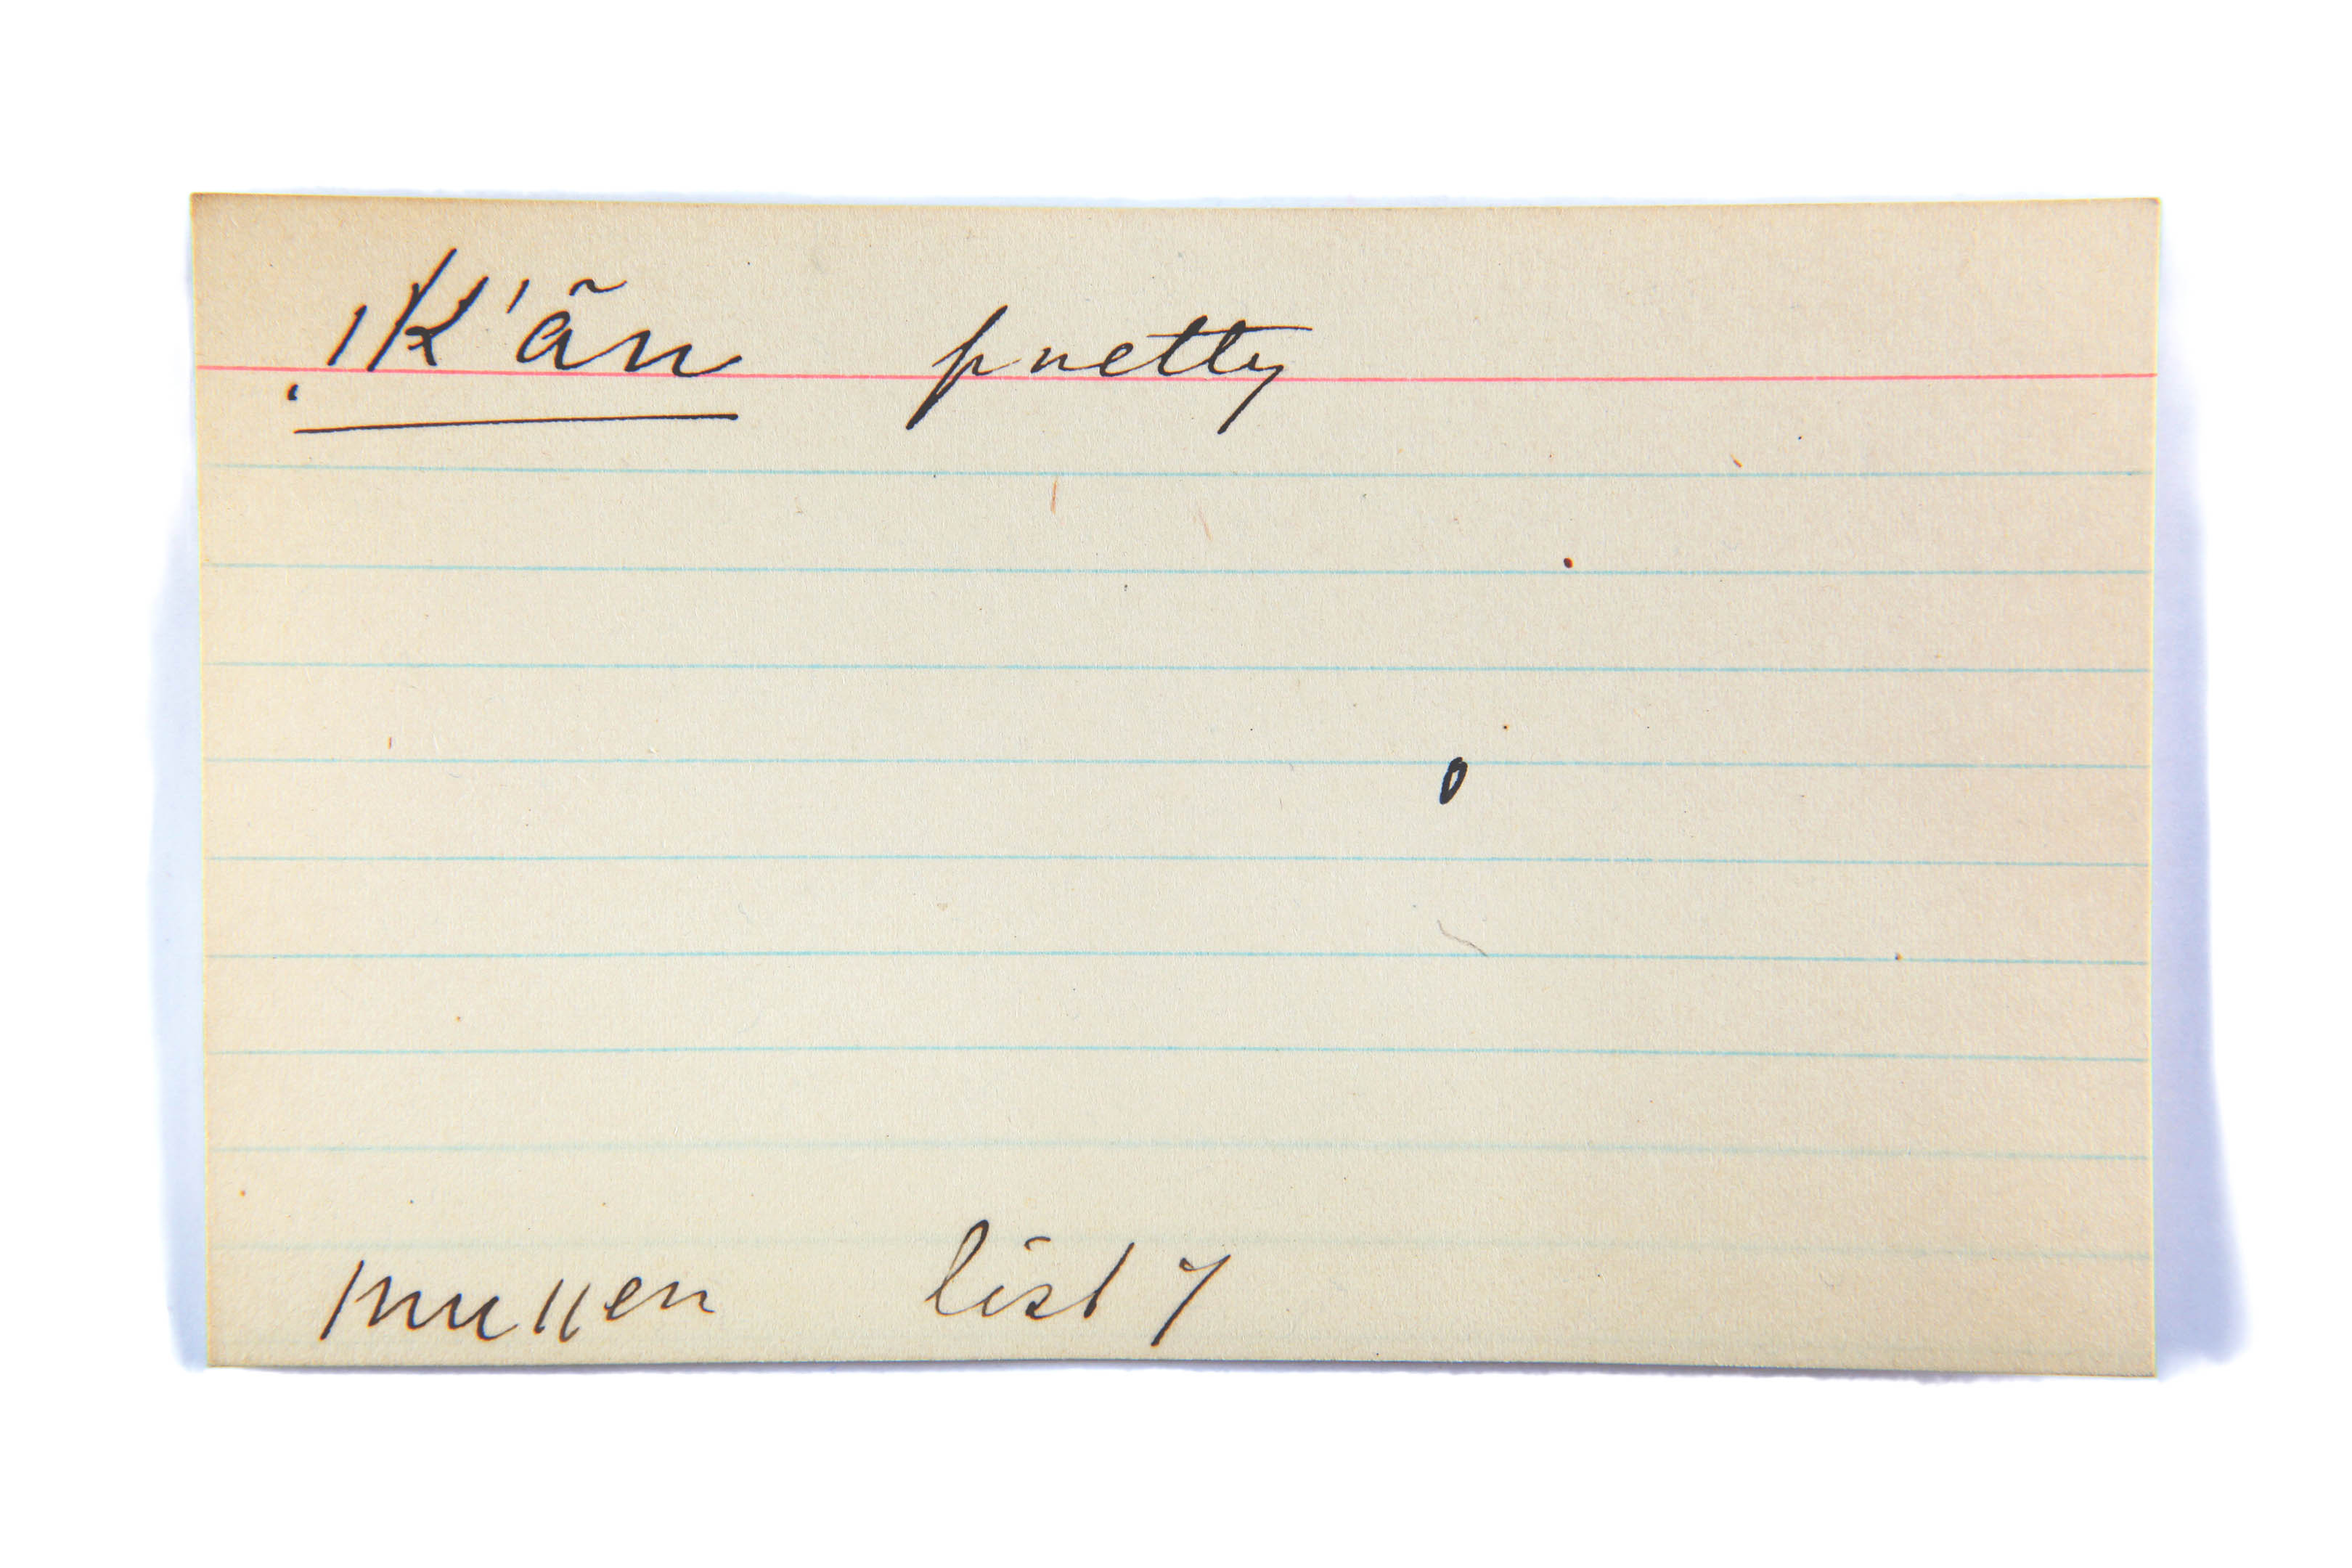 ık'ãn pretty
Mullen list 7